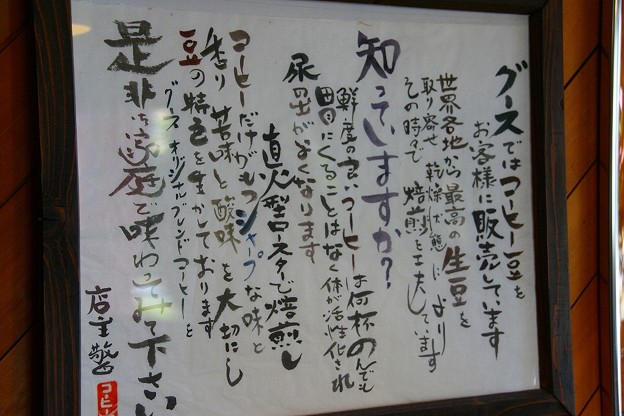 グースではコーヒー豆を
お客様に販売しています
世界各地から最高の生豆を
取り寄せ 乾燥状態により
その時々で 焙煎を工夫しています
知っていますか?
鮮度の良いコーヒーは何杯のんでも
胃にくることはなく体が活性化され
尿の出がよくなります
直火型ロースターで焙煎し
コーヒーだけがもつシャープな味と
香り 苦味と酸味を大切にし
豆の特色を生かしております
グースオリジナルブレンドコーヒーを
是非ご家庭で味わってみて下さい
店主 警
コーヒー